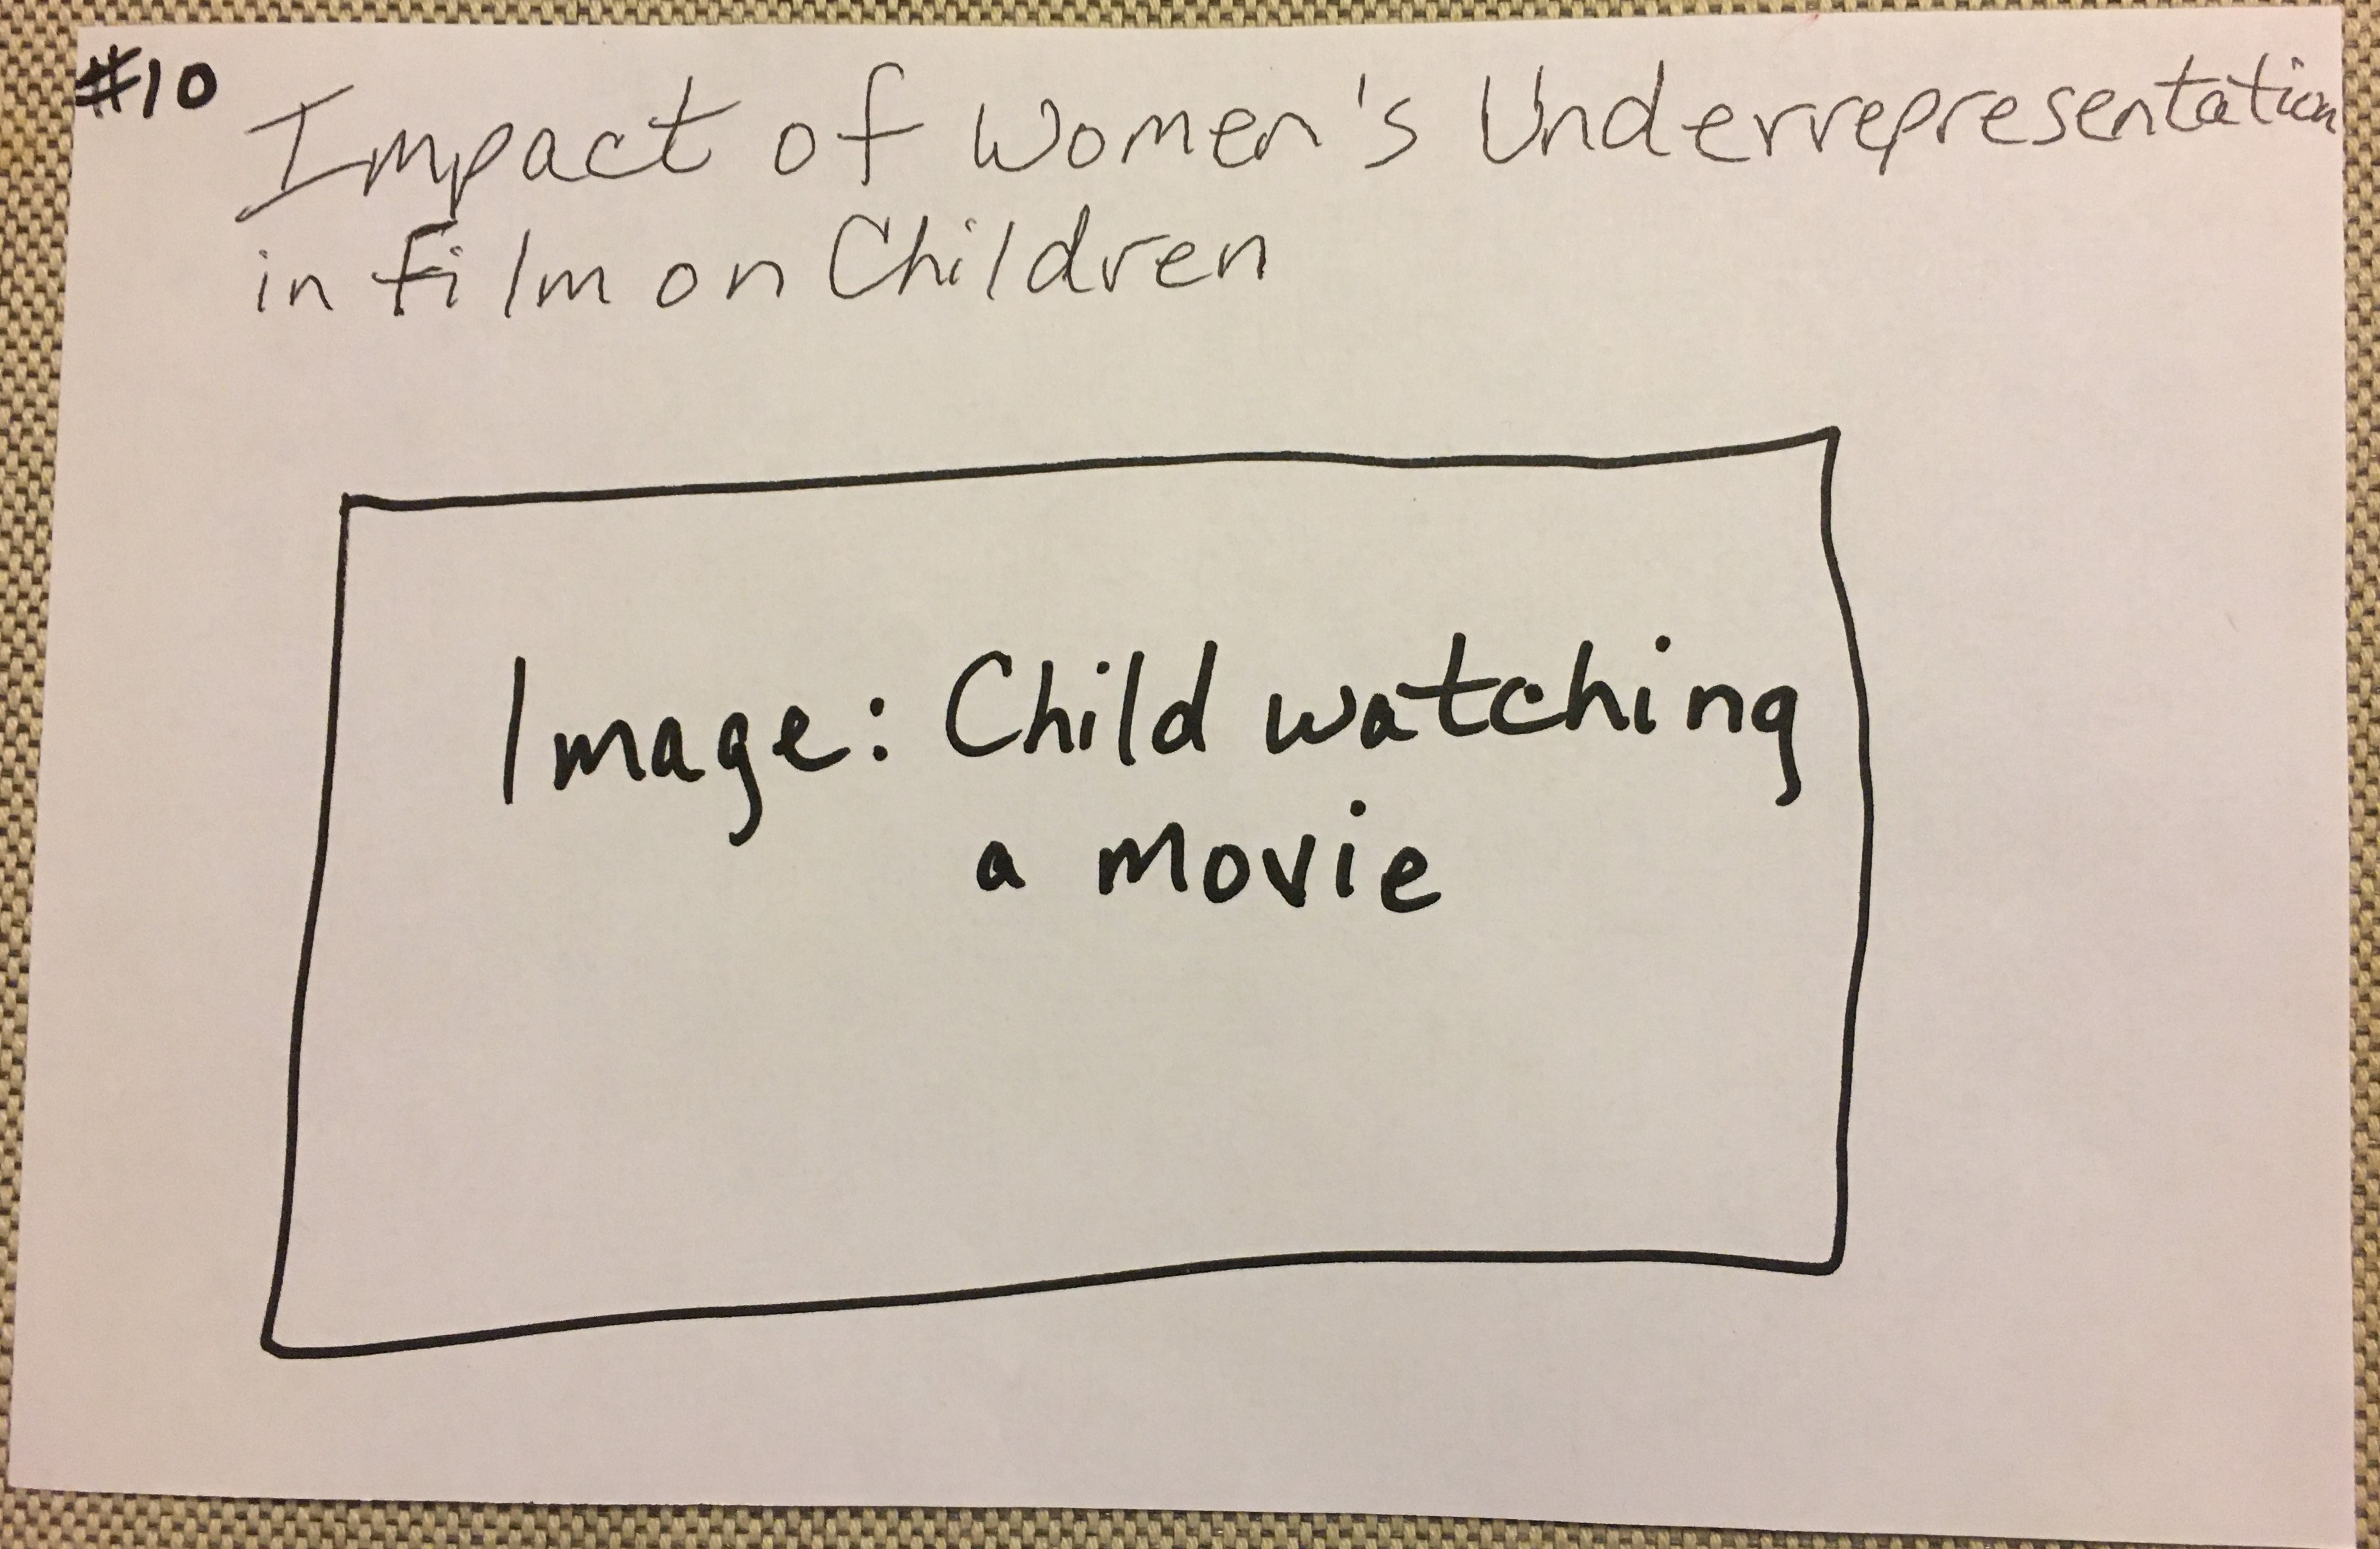 #10 Impact of Women's Underrepresentation
in film on Children
Image: Child watching
a movie